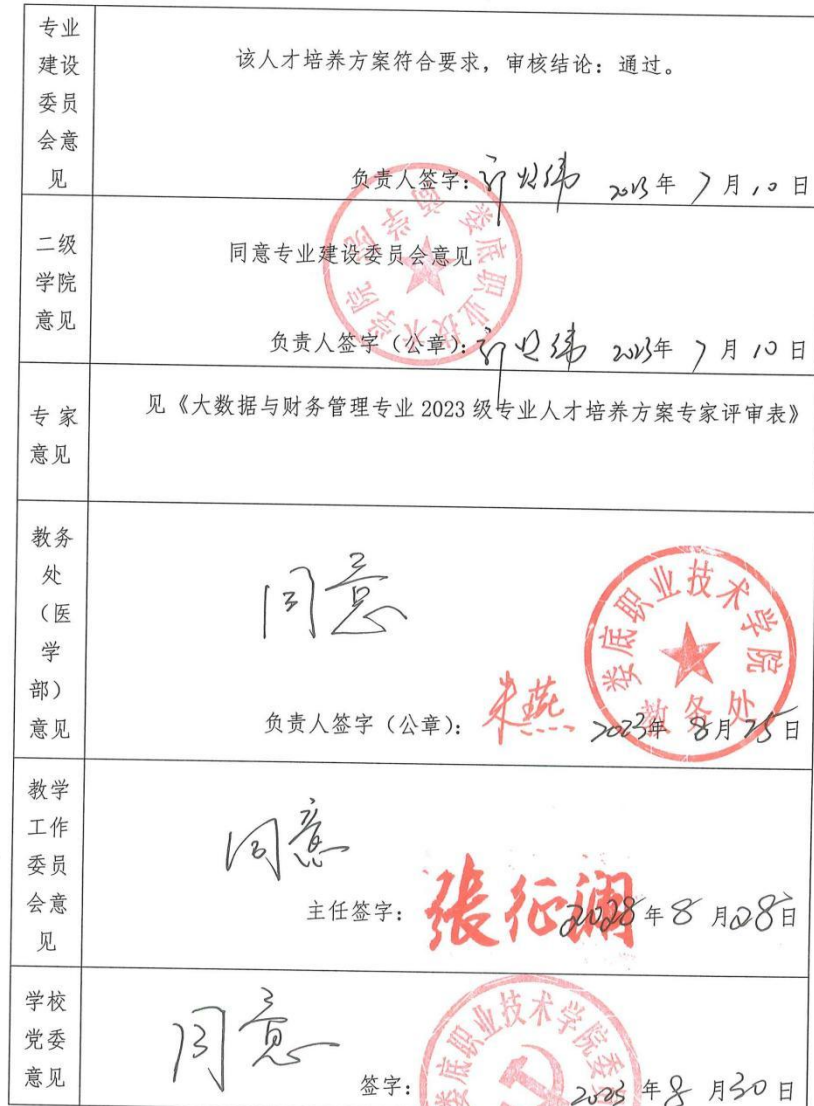 专业
建设
委员
会意
见
该人才培养方案符合要求，审核结论：通过。
负责人签字： 2023年 7月10日
二级
学院
意见
同意专业建设委员会意见
负责人签字（公章）： 2023年 7月10日
娄底职业技术学院 商学院
专家
意见
见《大数据与财务管理专业2023级专业人才培养方案专家评审表》
教务
处
（医
学
部）
意见
同意
负责人签字（公章）： 朱燕 2023年 8月25日
娄底职业技术学院
教务处
教学
工作
委员
会意
见
同意
主任签字： 張征澜 2028年8月28日
学校
党委
意见
同意
签字： 2023年8月30日
娄底职业技术学院委员